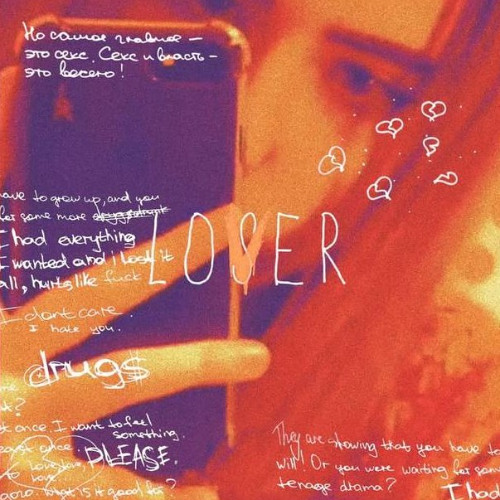 Но самое главное –
это секс. Секс и власть –
это весело!
have to grow up, and you
for some more
I had everything
I wanted and i lost it
all, hurts like fuck
LOSER
V
I dont care.
I hate you.
drug$
at once. I want to feel
something.
once.
PLEASE.
love
What is it good for?
They are showing that you have to
will! Or you were waiting for some
teenage drama?
I had